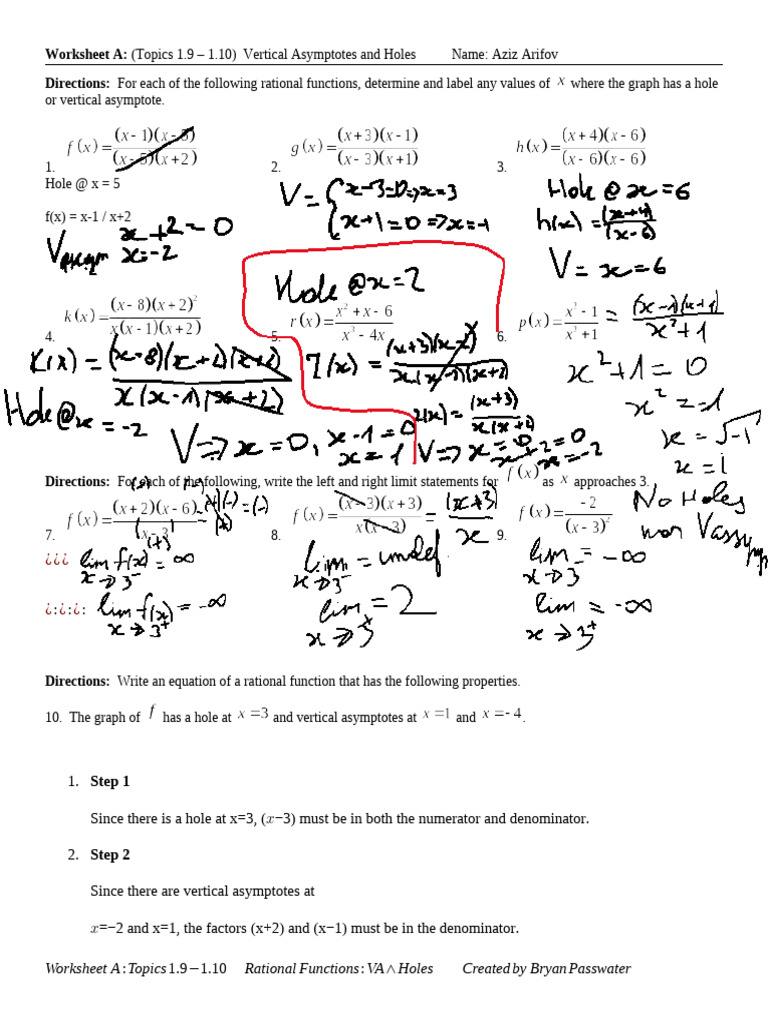 Worksheet A: (Topics 1.9 – 1.10) Vertical Asymptotes and Holes Name: Aziz Arifov
Directions: For each of the following rational functions, determine and label any values of x where the graph has a hole
or vertical asymptote.
1. f(x)=(x-1)(x-5)/(x-5)(x+2) 2. g(x)=(x+3)(x-1)/(x-3)(x+1) 3. h(x)=(x+4)(x-6)/(x-6)(x-6)
Hole @ x = 5
f(x) = x-1 / x+2
x+2=0
Vasym x=-2
V= {x-3=0=>x=3
x+1=0=>x=-1
Hole @ x=6
h(x)=(x+4)/(x-6)
V= x=6
Hole @x=2
4. k(x)=(x-8)(x+2)²/x(x-1)(x+2) 5. r(x)=x²+x-6/x³-4x 6. p(x)=x³-1/x³+1
K(x)=(x-8)(x+2)(x+2)/x(x-1)(x+2)
Hole @x=-2
V=>x=0, x-1=0
x=1
(x+3)(x-2)
r(x)=(x+3)/x(x+2)
V=>x=0
x+2=0
x=-2
=(x-1)(x+1)/x²+1
x²+1=0
x²=-1
x=√-1
x=i
No Holes
nor Vasymp
Directions: For each of the following, write the left and right limit statements for f(x) as x approaches 3.
7. f(x)=(x+2)(x-6)/(x-3) 8. f(x)=(x-3)(x+3)/x(x-3) =(x+3)/x 9. f(x)=-2/(x-3)²
¿¿¿ lim f(x)=∞
x→3⁻
¿:¿:¿: lim f(x)=-∞
x→3⁺
lim = undef.
x→3⁻
lim = 2
x→3⁺
lim = -∞
x→3⁻
lim = -∞
x→3⁺
Directions: Write an equation of a rational function that has the following properties.
10. The graph of f has a hole at x=3 and vertical asymptotes at x=1 and x=-4.
1. Step 1
Since there is a hole at x=3, (x−3) must be in both the numerator and denominator.
2. Step 2
Since there are vertical asymptotes at
x=−2 and x=1, the factors (x+2) and (x−1) must be in the denominator.
Worksheet A:Topics 1.9−1.10 Rational Functions:VA∧Holes Created by Bryan Passwater